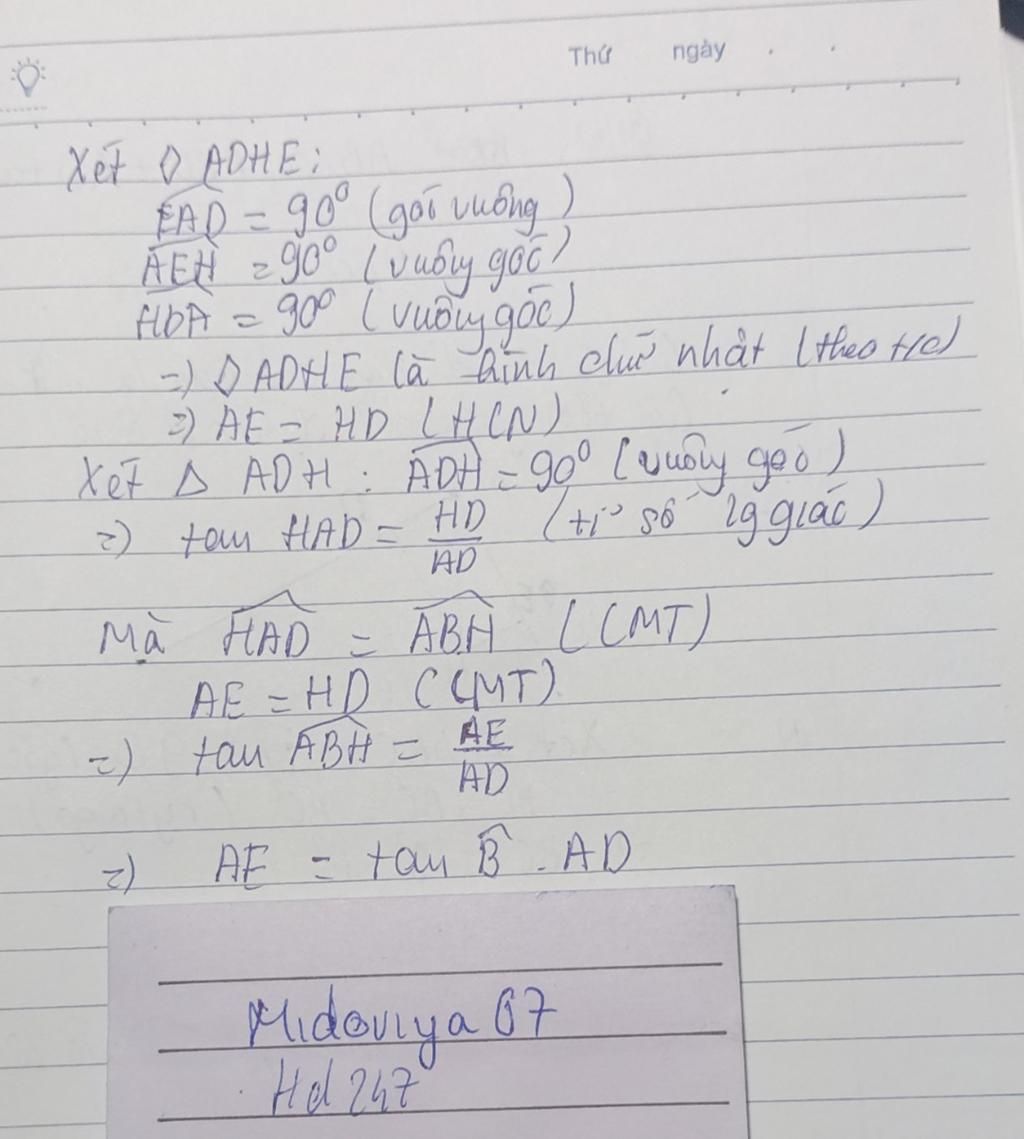 Thứ ngày . .
Xét ◊ ADHE:
EAD = 90⁰ (góc vuông)
AEH = 90⁰ (vuông góc)
HDA = 90⁰ (vuông góc)
=) ◊ ADHE là hình chữ nhật (theo t/c)
=) AE = HD (HCN)
Xét Δ ADH : ADH = 90⁰ (vuông góc)
=) tan HAD = HD/AD (tỉ số lg giác)
Mà HAD = ABH (CMT)
AE = HD (CMT)
=) tan ABH = AE/AD
=) AE = tan B . AD
Midoviya 07
Hd 247